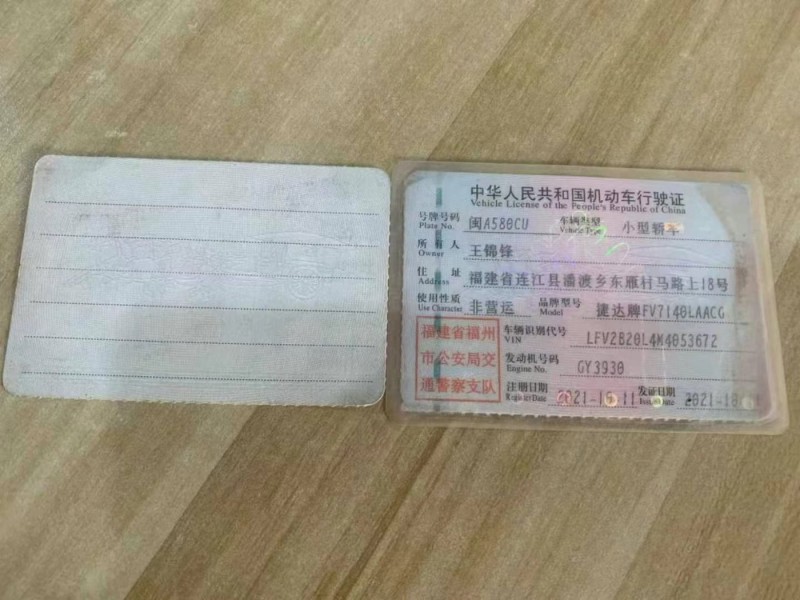 中华人民共和国机动车行驶证
Vehicle License of the People's Republic of China
号牌号码 闽A580CU 车辆类型 小型轿车
Plate No. Vehicle Type
所有人 王锦锋
Owner
住址 福建省连江县潘渡乡东雁村马路上18号
Address
使用性质 非营运 品牌型号 捷达牌FV7140LAACG
Use Character Model
福建省福州 车辆识别代号 LFV2B20L4M4053672
VIN
市公安局交 发动机号码 GY3930
Engine No.
通警察支队 注册日期 2021-10-11 发证日期 2021-10
Register Date Issue Date